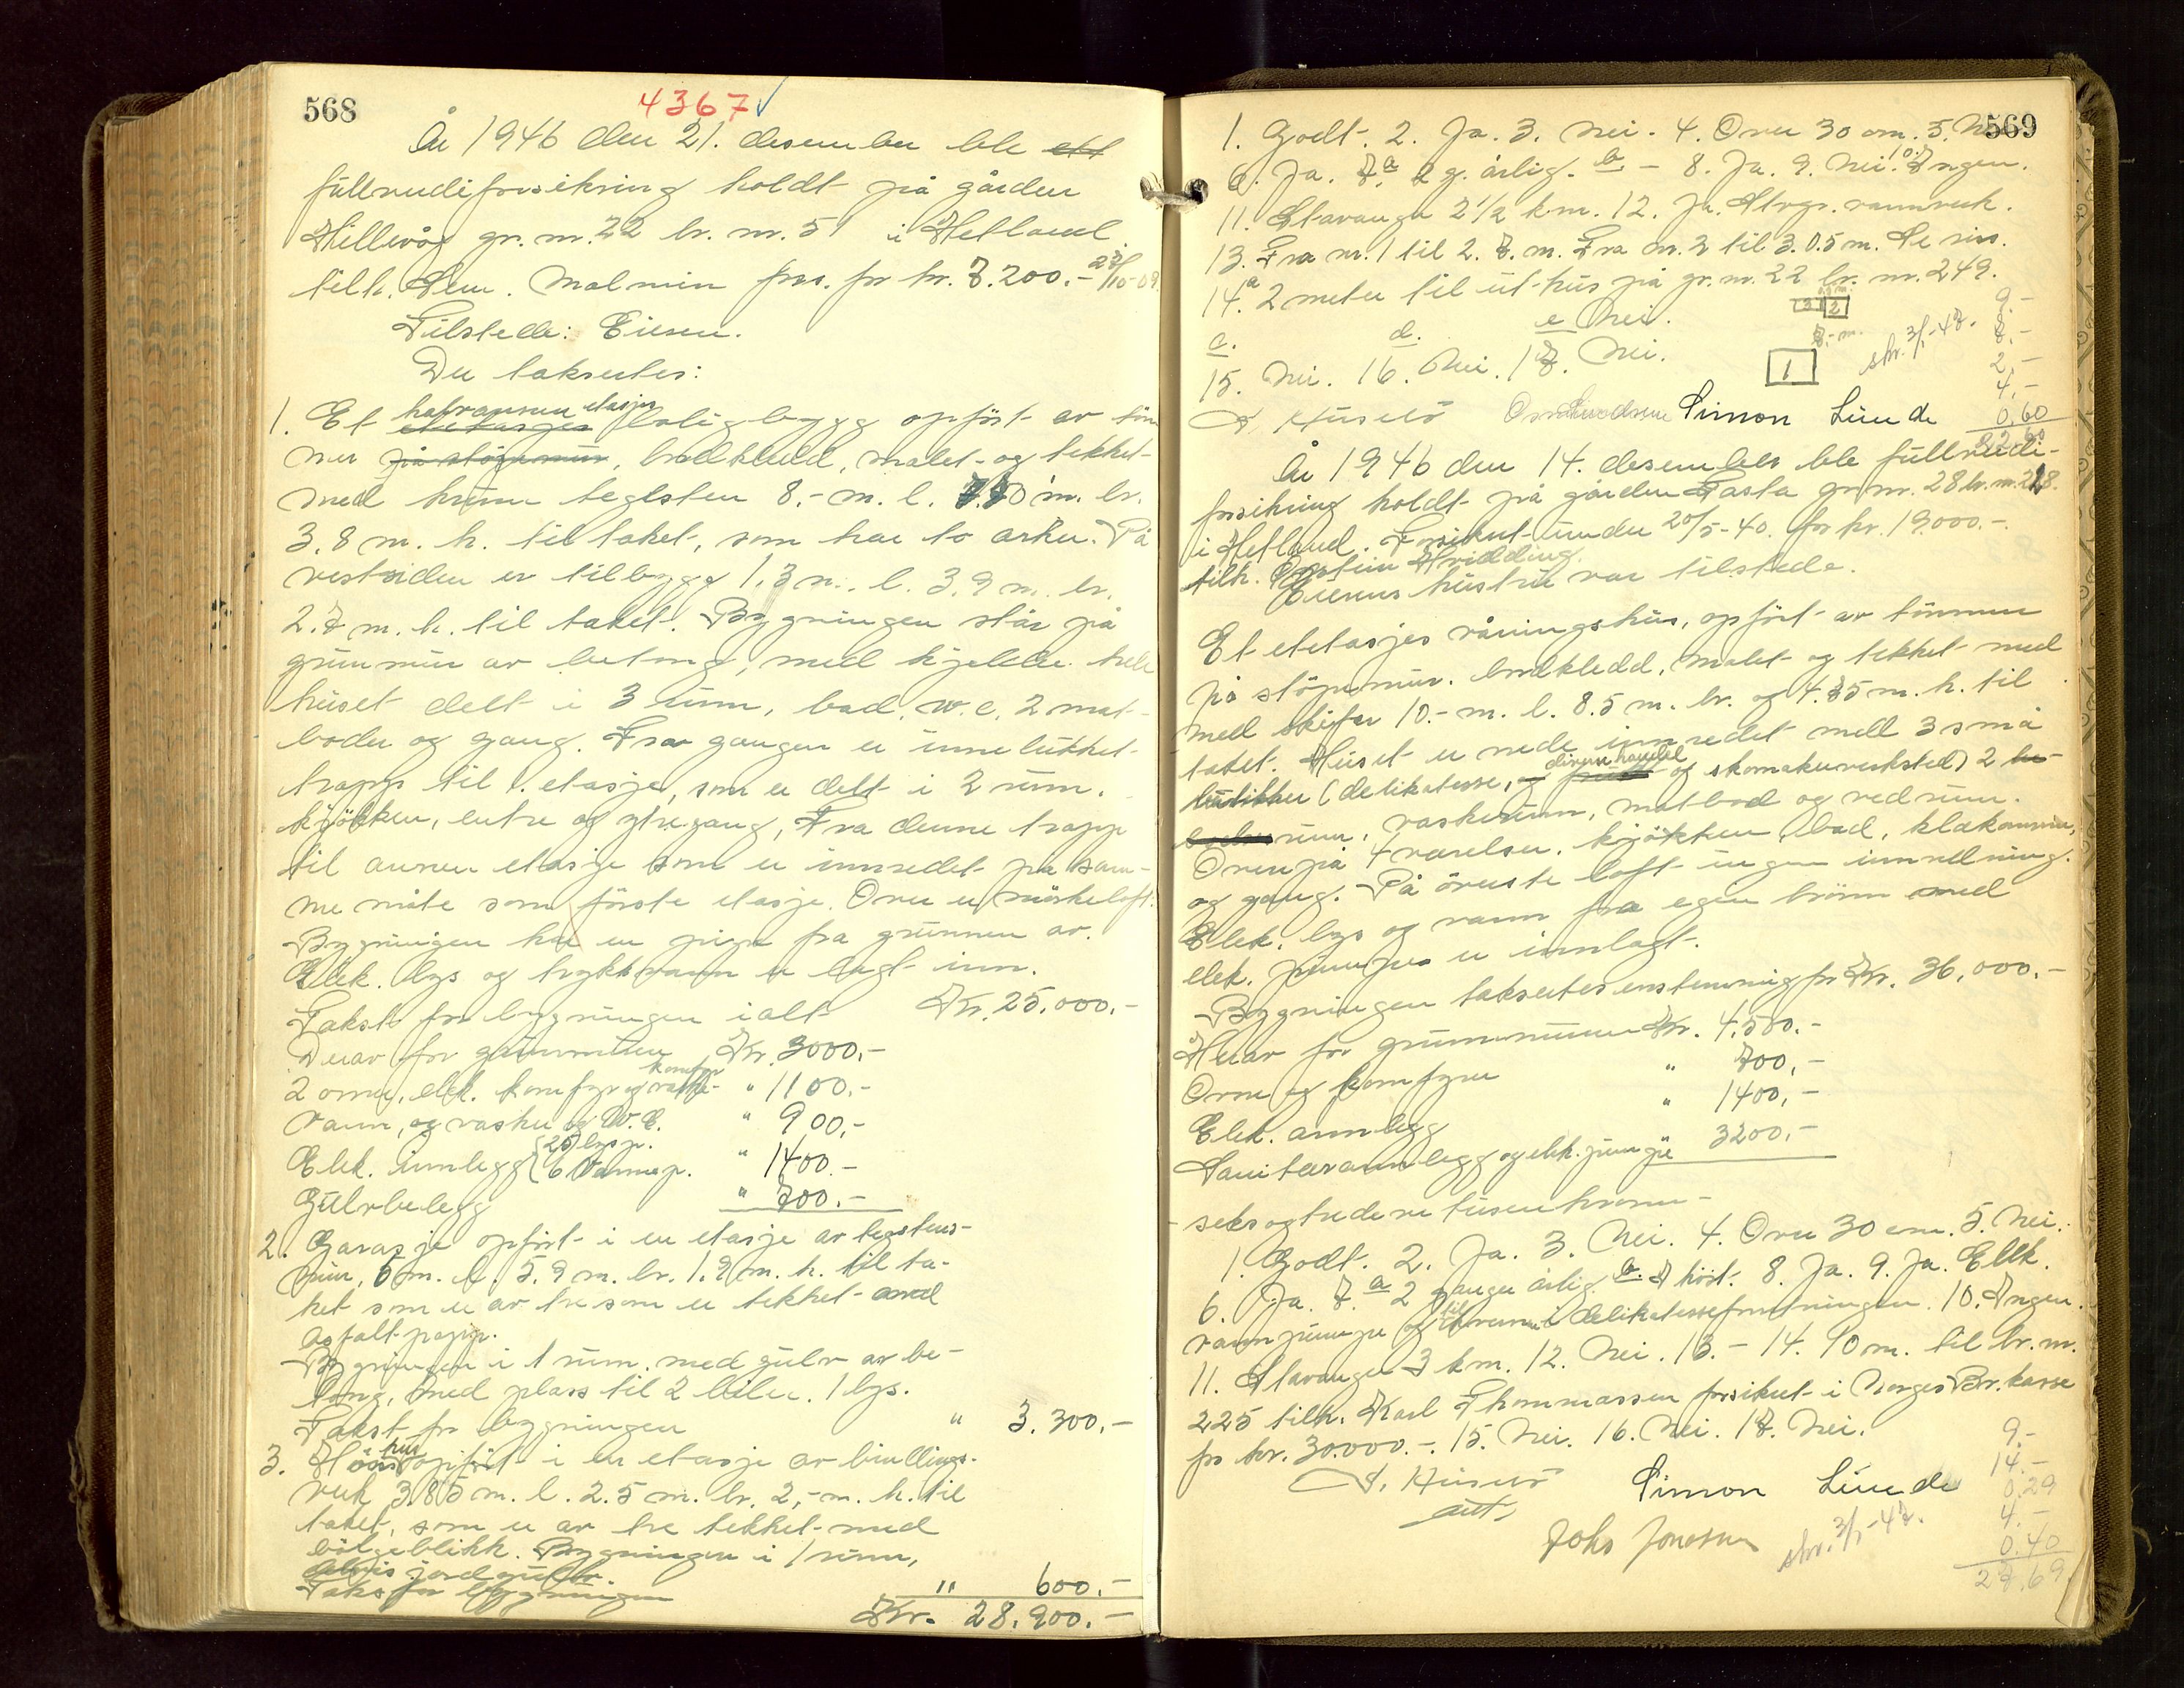 568
4367
År 1946 den 21. desember ble ett
fullverdiforsikring holdt på gården
Hillevåg gr. nr. 22 br. nr. 51 i Hetland
tilh. Sem. Malmin fors. for kr. 7.200.- 27/10-09
Tilstede: Eieren.
Der taksertes:
1. Et halvannen etasjes etetasjes boligbygg opført av tøm
mer på støpemur, bordkledd, malet og tekket
med krum teglsten 8.- m. l. 7.70 m. br.
3.8 m. h. til taket, som har to arker. På
vestsiden er tilbygg 1.3 m. l. 3.9 m. br.
2.7 m. h. til taket. Bygningen står på
grunnmur av betong, med kjeller hele
huset delt i 3 rum, bad, w.c. 2 mat-
boder og gang. Fra gangen er innelukket
trapp til 1. etasje, som er delt i 2 rum,
kjøkken, entre og ytregang, Fra denne trapp
til annen etasje som er innredet på sam-
me måte som første etasje. Over er mørkeloft.
Bygningen har en pipe fra grunnen av.
Elek. lys og trykkvann er lagt inn.
Takst for bygningen ialt Kr. 25.000.-
Derav for grunnmuren Kr. 3000.-
2 ovner, elek. komfyr og vaske- komfyr " 1100.-
Vann, og vasker og W.C. " 900.-
Elek. innlegg (25 lysp. 6 varmep. " 1400.-
Gulvbelegg " 700.-
2. Garasje opført i en etasje av teglstens-
mur, 6 m. l. 5.9 m. br. 1.9 m. h. til ta-
ket som er av tre som er tekket med
asfaltpapp.
Bygningen i 1 rum. med gulv av be-
tong, med plass til 2 biler. 1 lys.
Takst for bygningen " 3.300.-
3. Hønsehus opført i en etasje av bindings-
verk 3.85 m. l. 2.5 m. br. 2,- m. h. til
taket, som er av tre tekket med
bølgeblikk. Bygningen i 1 rum,
delvis jordgulv.
Takst for bygningen " 600.-
Kr. 28.900.-
569
1. Godt. 2. Ja. 3. Nei. 4. Over 30 cm. 5. Nei
6. Ja. 7. a 2 g. årlig. b. - 8. Ja. 9. Nei. 10. Ingen.
11. Stavanger 2 1/2 km. 12. Ja. Stvgr. vannverk.
13. Fra nr. 1 til 2. 7. m. Fra nr. 2 til 3. 0.5 m. Se riss.
14. a 2 meter til uthus på gr. nr. 22 br. nr. 249.
c. d. e Nei.
15. Nei. 16. Nei. 17. Nei.
3 2
7.- m.
1
skr. 3/1-47.
9.-
7.-
2,-
4,-
0.60
22.60
S. Husebø Simon Lunde
År 1946 den 14. desember ble fullverdi-
forsikring holdt på gården Tasta gr. nr. 28 br. nr. 228.
i Hetland. Forsikret under 20/5-40. for kr. 19.000.-
tilh. Øystein Hridding.
Eierens hustru var tilstede.
Et etetasjes våningshus, opført av tømmer
på støpemur. bordkledd, malet og tekket med
med skifer 10.- m. l. 8.5 m. br. og 4.75 m. h. til
taket. Huset er nede innredet med 3 små
butikker (delikatesse, og frukt diversehandel og skomakerverksted) 2 bo-
boder rum, vaskerum, matbod og vedrum.
Oven på 4 værelser, kjøkken, bad, klækammer,
og gang. På øverste loft ingen innredning.
Elek. lys og vann fra egen brønn med
elek. pumpe er innlagt.
Bygningen takseres enstemmig for Kr. 36.000.-
Herav for grunnmuren Kr. 4.500.-
Ovner og komfyrer " 700,-
Elek. anlegg " 1400,-
Sanitæranlegg og elek. pumpe 3200.-
- seksogtredve tusen kroner -
1. Godt. 2. Ja. 3. Nei. 4. Over 30 cm. 5. Nei.
6. Ja. 7. a 2 ganger årlig. b. I høst. 8. Ja. 9. Ja. Elek.
vannpumpe og til i delikatesseforretningen. 10. Ingen.
11. Stavanger 3 km. 12. Nei. 13. - 14. 10 m. til br. nr.
225 tilh. Karl Thommassen forsikret i Norges Br. kasse
for kr. 30.000.-. 15. Nei. 16. Nei. 17. Nei.
S. Husebø Simon Lunde
Johs Jonassen
skr. 3/1-47.
9.-
14.-
0.29
4.-
0.40
27.69